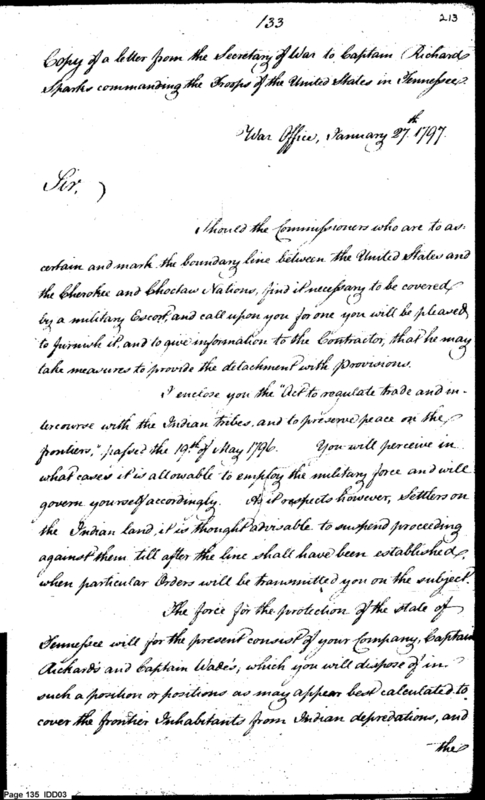 133
213
Copy of a letter from the Secretary of War to Captain Richard
Sparks commanding the Troops of the United States in Tennessee.
War Office, January 27th. 1797.
Sir,
Should the Commissioners who are to as-
certain and mark the boundary line between the United States and
the Cherokee and Choctaw Nations, find it necessary to be covered
by a military Escort, and call upon you for one you will be pleased
to furnish it, and to give information to the Contractor, that he may
take measures to provide the detachment with provisions.
I enclose you the "Act to regulate trade and in-
tercourse with the Indian tribes, and to preserve peace on the
frontiers," passed the 19th. of May 1796. You will perceive in
what cases it is allowable to employ the military force and will
govern yourself accordingly. As it respects however, Settlers on
the Indian land it is thought advisable to suspend proceeding
against them till after the line shall have been established,
when particular Orders will be transmitted you on the subject.
The force for the protection of the state of
Tennessee will for the present consist of your Company, Captain
Rickard's and Captain Wade's, which you will dispose of in
such a position or positions as may appear best calculated to
cover the frontier Inhabitants from Indian depredations, and
the
Page 135 IDD03